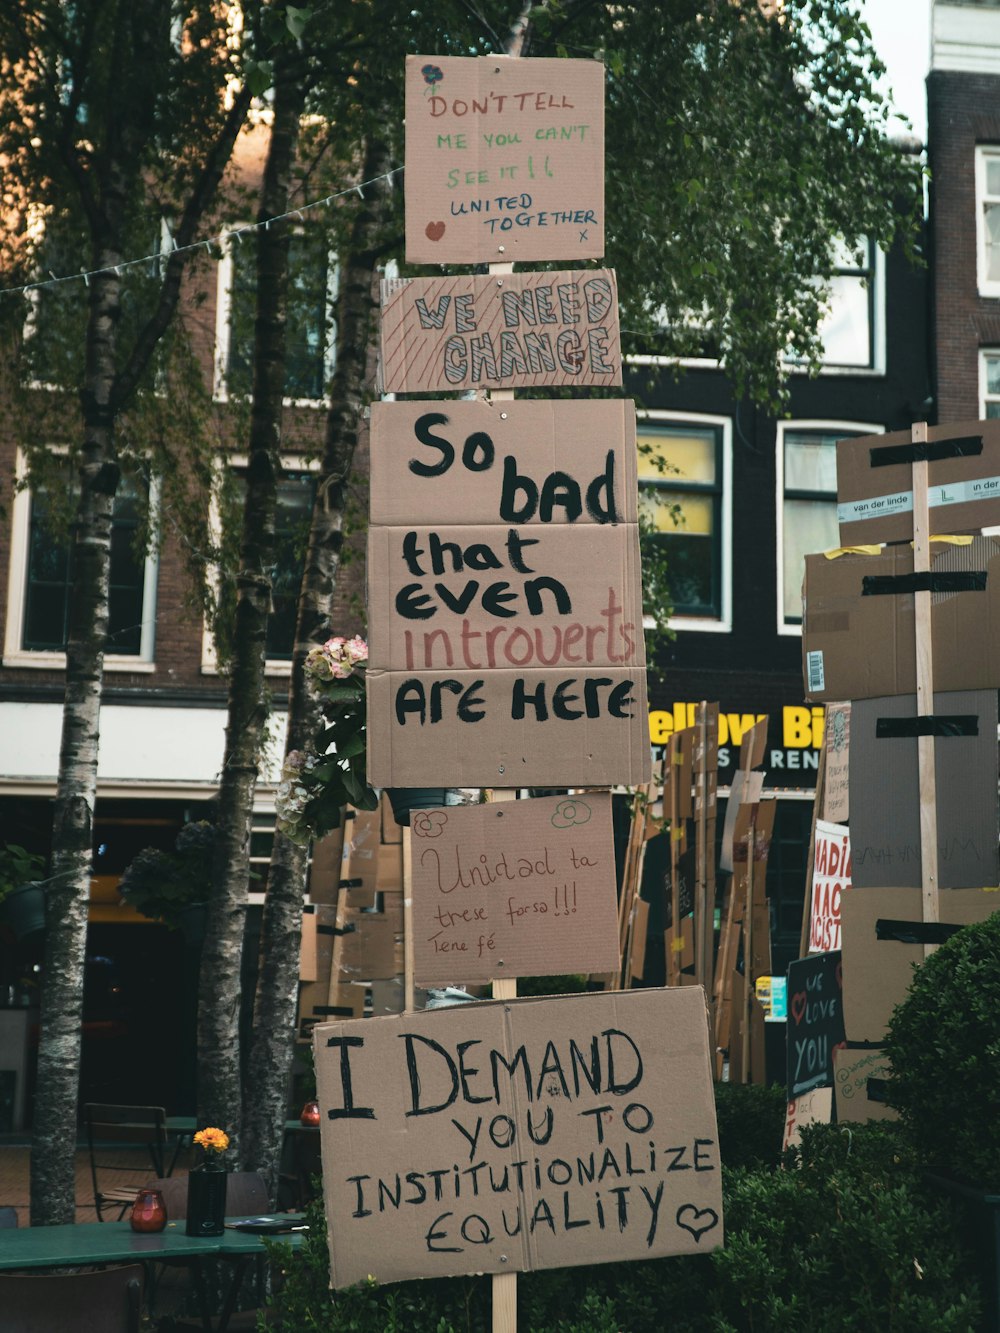 DON'T TELL
ME YOU CAN'T
SEE IT!!
UNITED
TOGETHER
x
WE NEED
CHANGE
So
bAd
that
even
introverts
Are Here
Unidad ta
trese forsa!!!
Tene fé
I DEMAND
YOU TO
INSTITUTIONALiZE
EQUALiTY
van der linde
in der
Yellow Bi
S REN
WE
LOVE
YOU